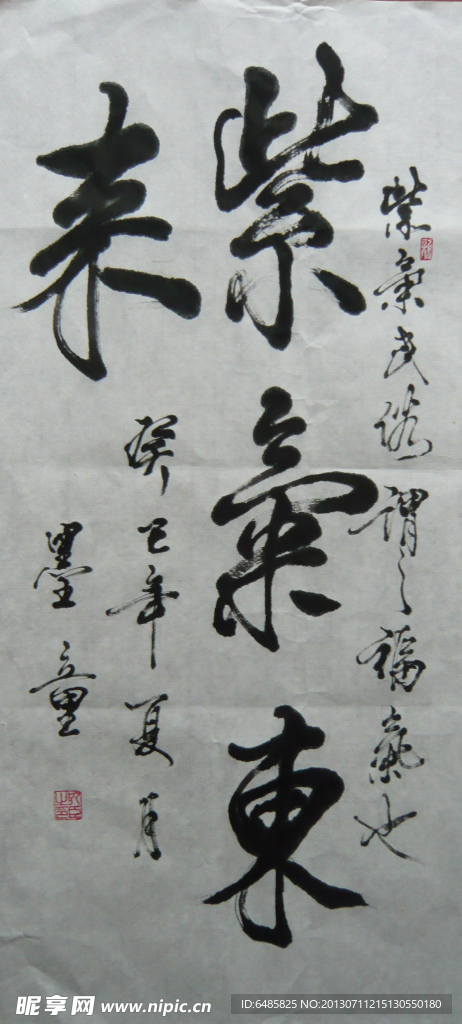 紫氣民俗謂之福氣也
紫氣東
来
癸巳年夏月
墨童
昵享网 www.nipic.cn
ID:6485825 NO:20130711215130550180